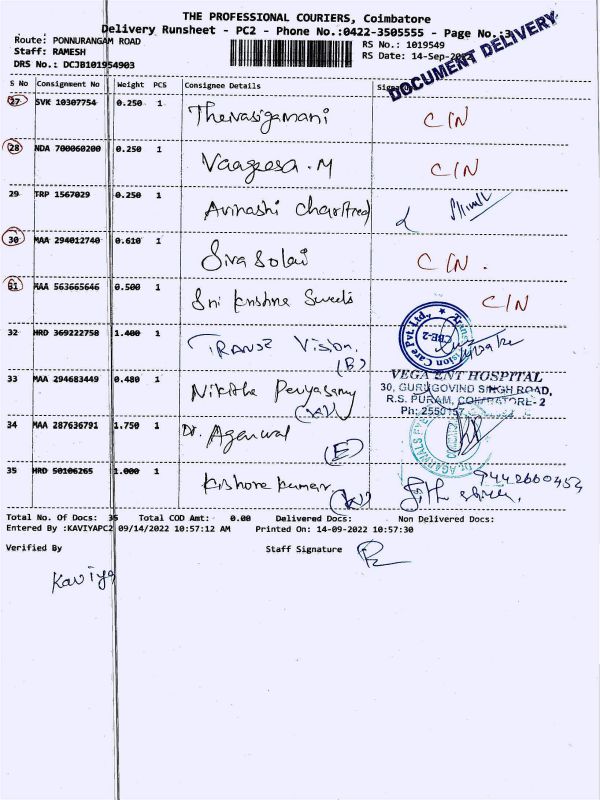 THE PROFESSIONAL COURIERS, Coimbatore
Delivery Runsheet - PC2 - Phone No.:0422-3505555 - Page No.:3
Route: PONNURANGAM ROAD
RS No.: 1019549
Staff: RAMESH
RS Date: 14-Sep-2022
DRS No.: DCJB101954903
DOCUMENT DELIVERY
S No Consignment No Weight PCS Consignee Details
27 SVK 10307754 0.250 1 Theivasigamani C/N
28 NDA 700060200 0.250 1 Vaageesa .M C/N
29 TRP 1567029 0.250 1 Avinashi Chartred
30 MAA 294012740 0.610 1 Siva Solai C/N .
31 MAA 563665646 0.500 1 Sri Krishna Sweets C/N
32 HRD 369222758 1.400 1 TRANSZ Vision. (B)
Vision Care Pvt. Ltd., CBE-2
33 MAA 294683449 0.480 1 Nikitha Periyasamy
VEGA ENT HOSPITAL
30, GURUGOVIND SINGH ROAD,
R.S. PURAM, COIMBATORE- 2
Ph: 2550157
34 MAA 287636791 1.750 1 Dr. Agarwal (E)
Dr. AGARWALS EYE
35 HRD 50106265 1.000 1 Kishore Kumar 9442660454
Total No. Of Docs: 35 Total COD Amt: 0.00 Delivered Docs: Non Delivered Docs:
Entered By :KAVIYAPC2 09/14/2022 10:57:12 AM Printed On: 14-09-2022 10:57:30
Verified By Staff Signature
Kaviya